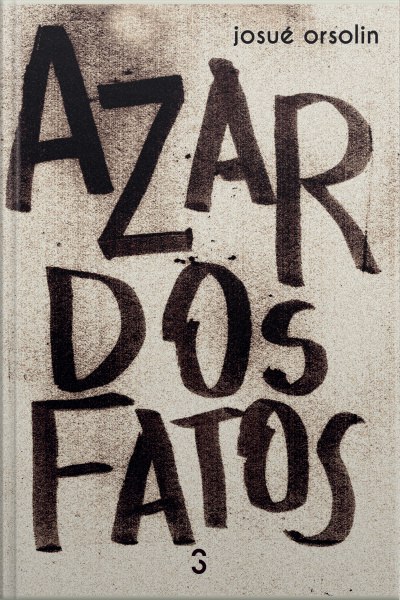 josué orsolin
AZAR
DOS
FATOS